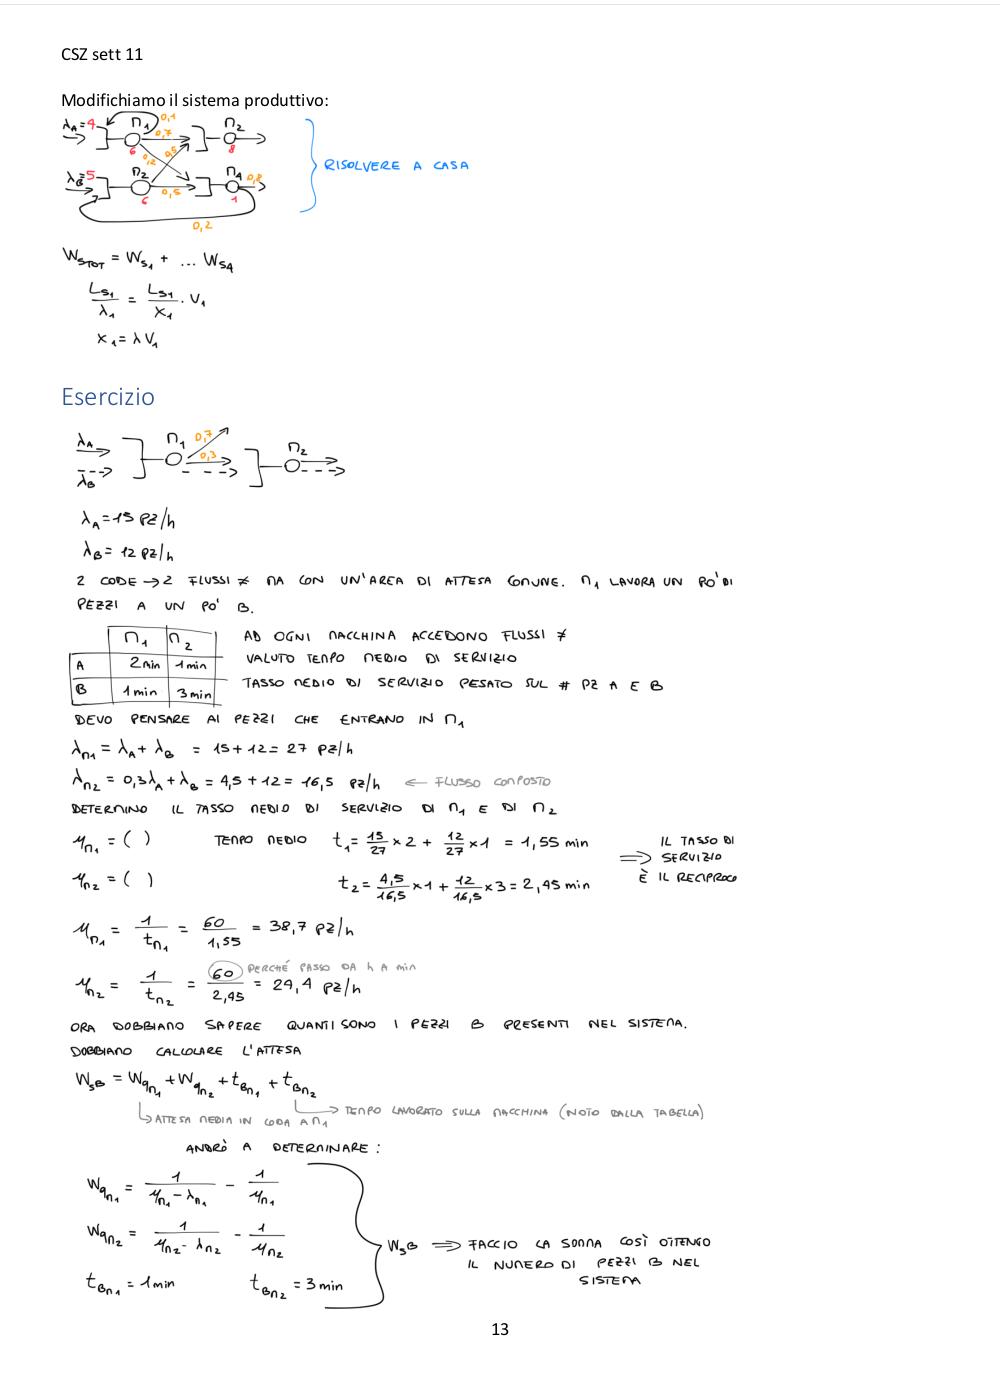 CSZ sett 11
Modifichiamo il sistema produttivo:
λA=4 M1 0,1 0,7 M2
6 0,2 0,5 8
λB=5 M2 M4 0,8
6 0,5 1
0,2
RISOLVERE A CASA
WSTOT = WS1 + ... WS4
LS1/λ1 = LS1/X1 · V1
X1 = λ V1
Esercizio
λA M1 0,7 M2
λB 0,3
λA = 15 PZ/h
λB = 12 PZ/h
2 CODE → 2 FLUSSI ≠ MA CON UN'AREA DI ATTESA COMUNE. M1 LAVORA UN PO' DI
PEZZI A UN PO' B.
M1 M2
A 2min 1min
B 1min 3min
AD OGNI MACCHINA ACCEDONO FLUSSI ≠
VALUTO TEMPO MEDIO DI SERVIZIO
TASSO MEDIO DI SERVIZIO PESATO SUL # PZ A E B
DEVO PENSARE AI PEZZI CHE ENTRANO IN M1
λM1 = λA + λB = 15+12 = 27 PZ/h
λM2 = 0,3λA + λB = 4,5 + 12 = 16,5 PZ/h ← FLUSSO COMPOSTO
DETERMINO IL TASSO MEDIO DI SERVIZIO DI M1 E DI M2
μM1 = ( ) TEMPO MEDIO t1 = 15/27 × 2 + 12/27 × 1 = 1,55 min
μM2 = ( ) t2 = 4,5/16,5 × 1 + 12/16,5 × 3 = 2,45 min
⇒ IL TASSO DI
SERVIZIO
È IL RECIPROCO
μM1 = 1/tM1 = 60/1,55 = 38,7 PZ/h
μM2 = 1/tM2 = 60/2,45 = 24,4 PZ/h
PERCHÉ PASSO DA h A min
ORA DOBBIAMO SAPERE QUANTI SONO I PEZZI B PRESENTI NEL SISTEMA.
DOBBIAMO CALCOLARE L'ATTESA
WSB = WqM1 + WqM2 + tBM1 + tBM2
→ TEMPO LAVORATO SULLA MACCHINA (NOTO DALLA TABELLA)
↳ ATTESA MEDIA IN CODA A M1
ANDRÒ A DETERMINARE:
WqM1 = 1/(μM1 - λM1) - 1/μM1
WqM2 = 1/(μM2 - λM2) - 1/μM2
tBM1 = 1min tBM2 = 3min
WSB ⇒ FACCIO LA SOMMA COSÌ OTTENGO
IL NUMERO DI PEZZI B NEL
SISTEMA
13